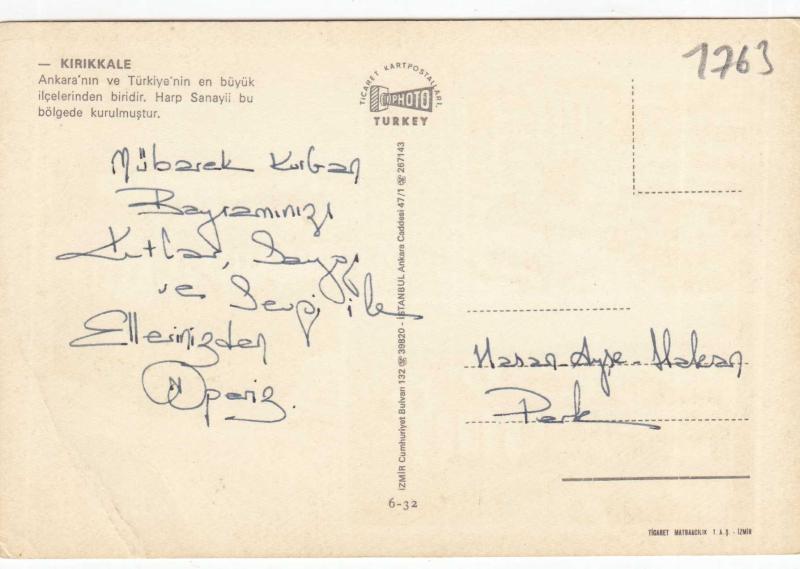 — KIRIKKALE
Ankara'nın ve Türkiye'nin en büyük
ilçelerinden biridir. Harp Sanayii bu
bölgede kurulmuştur.
Mübarek Kurban
Bayramınızı
Kutlar, Saygı
ve Sevgi ile
Ellerinizden
Öperiz.
TİCARET KARTPOSTALLARI.
PHOTO
TURKEY
İZMİR Cumhuriyet Bulvarı 132 ☏ 39820 - İSTANBUL Ankara Caddesi 47/1 ☏ 267143
6-32
1763
Hasan-Ayşe-Hakan
Perk
TİCARET MATBAACILIK T.A.Ş. - İZMİR